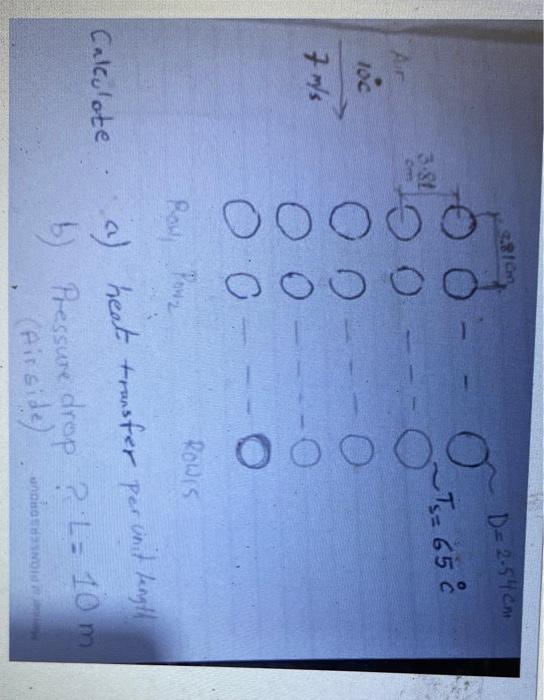 D = 2.54 cm
3.81 cm
Ts = 65°C
3.81
cm
Air
10°C
7 m/s
Row1 Row2 Row15
Calculate a) heat transfer per unit length
b) Pressure drop ? L = 10 m
(Air side)